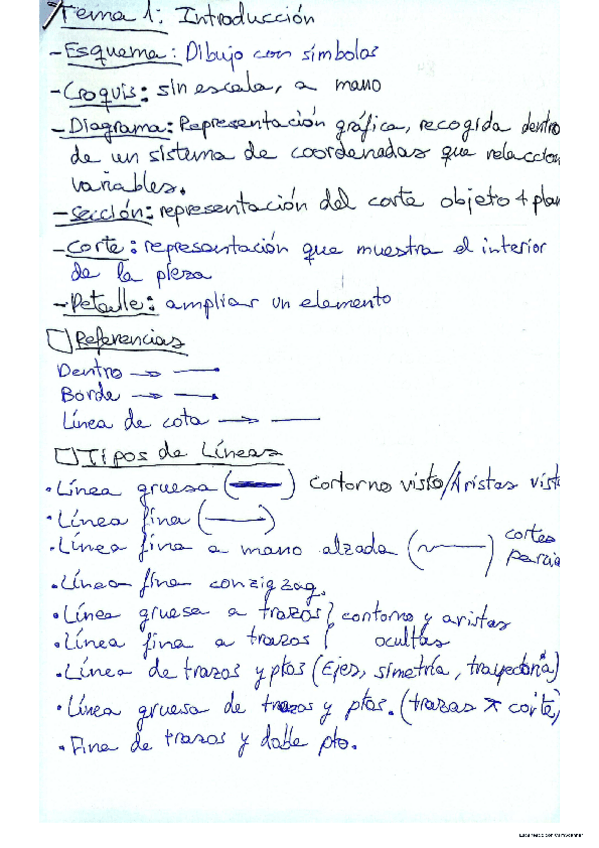 Tema 1: Introducción
- Esquema: Dibujo con símbolos
- Croquis: sin escala, a mano
- Diagrama: Representación gráfica, recogida dentro
de un sistema de coordenadas que relaccion
vañables.
- Sección: representación del corte objeto + plan
- Corte: representación que muestra el interior
de la pieza
- Detalle: ampliar un elemento
Referencias
Dentro
Borde
Línea de cota
Tipos de Líneas
• Línea gruesa ( ) cortorno visto/Aristas vist
• Línea fina ( )
• Línea fina a mano alzada ( ) cortes
parcia
• Línea fina con zigzag.
• Línea gruesa a trazos contorno y aristas
• Línea fina a trazos ocultas
• Línea de trazos y ptos (Ejes, simetría, trayectoria)
• Línea gruesa de trazos y ptos. (trazas x corte)
• Fina de trazos y doble pto.